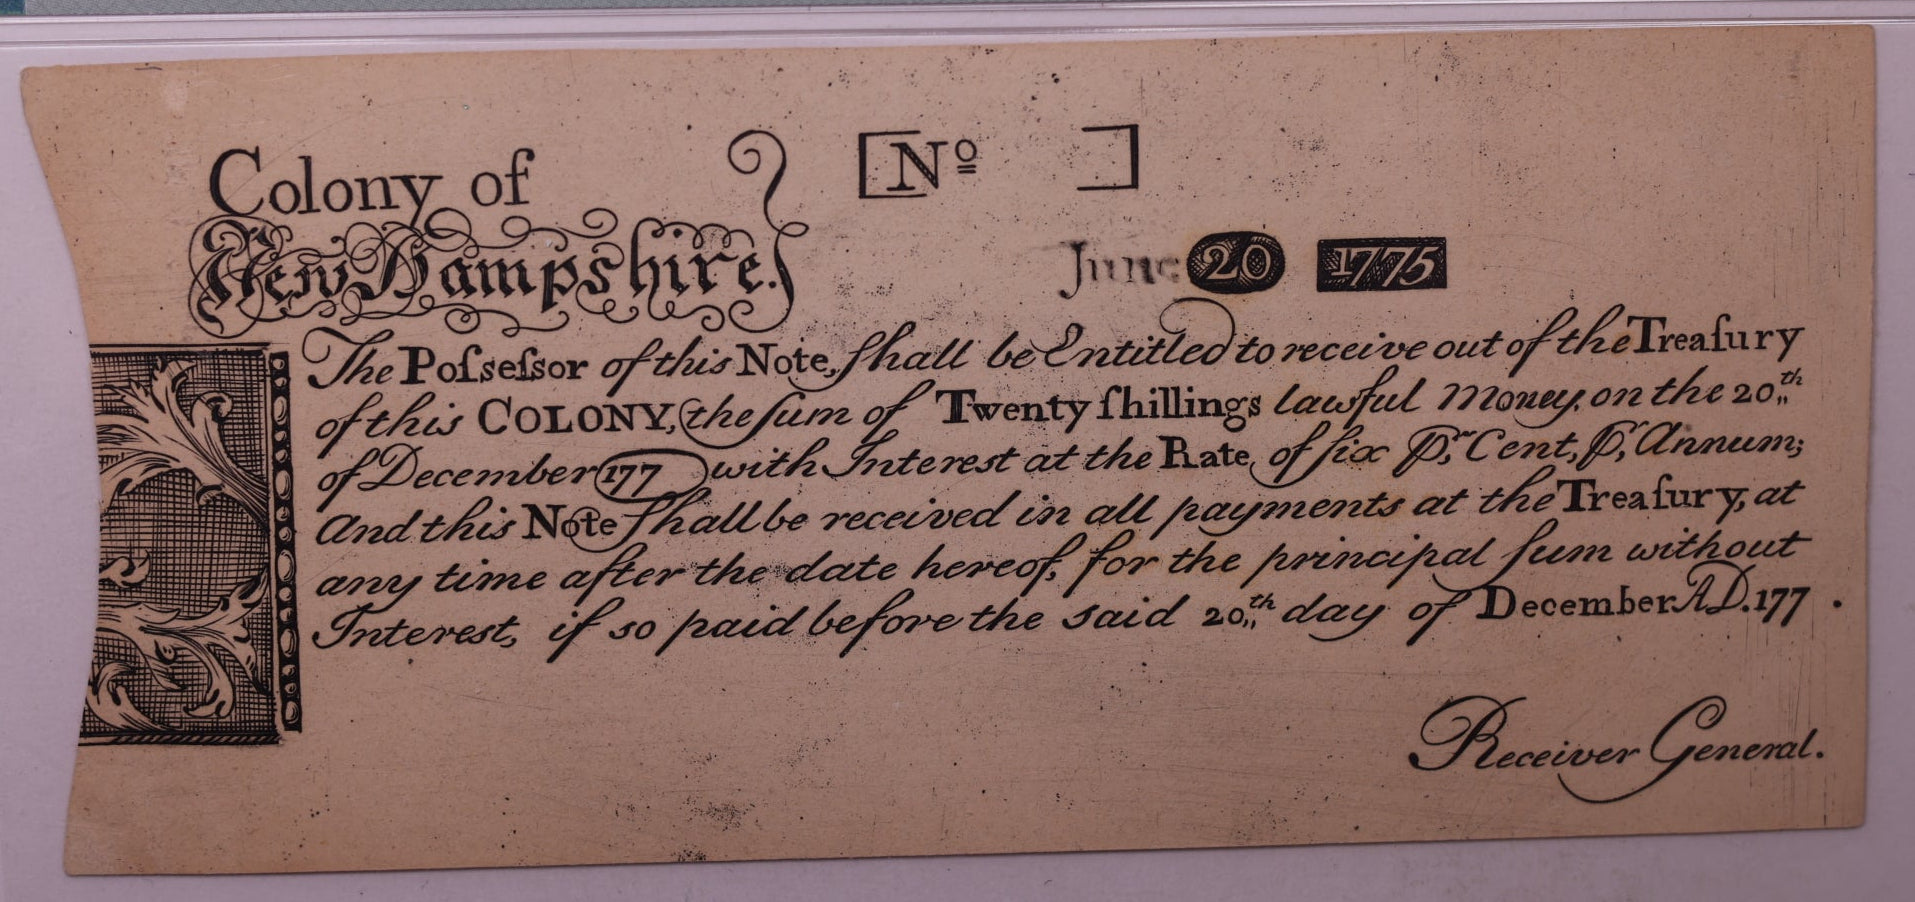 Colony of
New Hampshire.
[Nº ]
June 20 1775
The Poſseſsor of this Note, ſhall be Entitled to receive out of the Treaſury
of this COLONY, the ſum of Twenty ſhillings lawful Money, on the 20,,th
of December 177 with Interest at the Rate, of ſix Pr, Cent, Pr, Annum;
And this Note Shall be received in all payments at the Treaſury, at
any time after the date hereof, for the principal ſum without
Interest, if so paid before the said 20,,th day of December AD. 177 .
Receiver General.